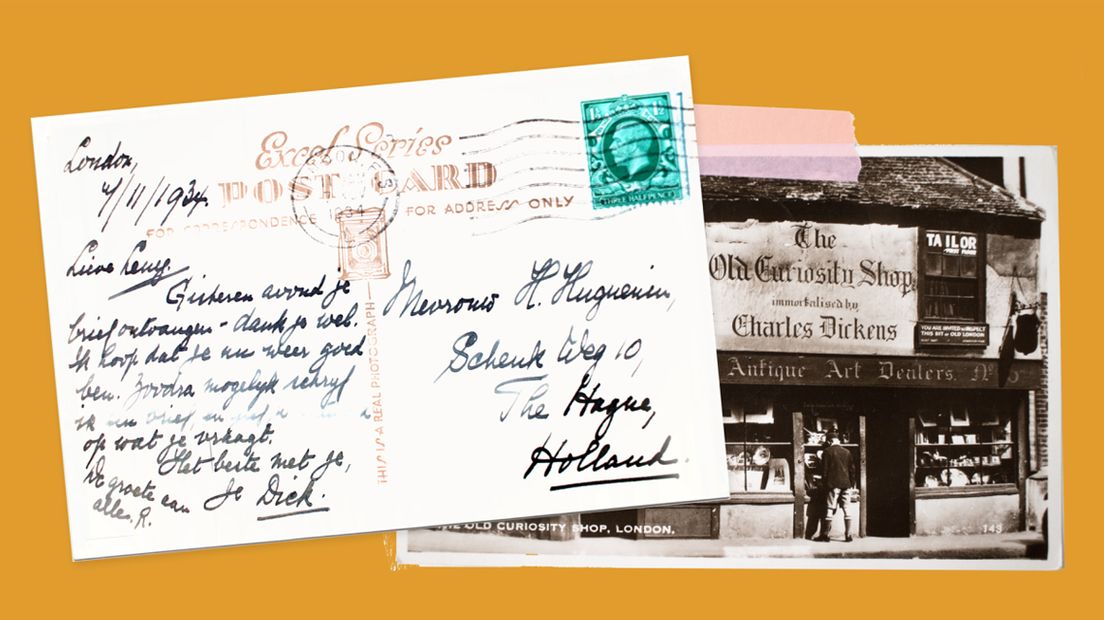 London,
4/11/1934.
Excel Series
POST CARD
FOR CORRESPONDENCE
FOR ADDRESS ONLY
1934
THREE HALFPENCE
THIS IS A REAL PHOTOGRAPH
Lieve Leny.
Gisteren avond je
brief ontvangen - dank je wel.
Ik hoop dat je nu weer goed
ben. Zoodra mogelyk schryf
ik een brief, en
op wat je vraagt.
Het beste met je,
De groete aan
alle. R.
Je Dick.
Mevrouw H. Huguenin,
Schenk Weg 10,
The Hague,
Holland.
The
Old Curiosity Shop
immortalised by
Charles Dickens
TAILOR
FIRST FLOOR
YOU ARE INVITED TO INSPECT
THIS BIT OF OLD LONDON
Antique Art Dealers. Nº
OLD CURIOSITY SHOP, LONDON.
143